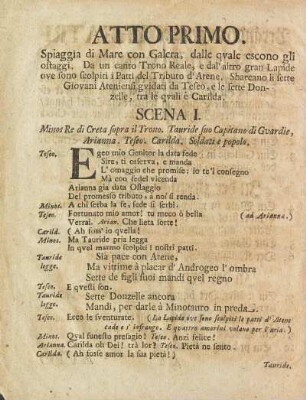 ATTO PRIMO.
Spiaggia di Mare con Galera, dalle qvale escono gli
ostaggi. Da un canto Trono Reale, e dal'altro gran Lapide
ove sono scolpiti i Patti del Tributo d'Atene. Sbarcano li sette
Giovani Ateniensi gvidati da Teseo, e le sette Don-
zelle, tra le qvali è Carilda.
SCENA I.
Minos Re di Creta sopra il Trono. Tauride suo Capitano di Gvardie,
Arianna. Teseo. Carilda. Soldati e popolo.
Teseo. Egeo mio Genitor la data fede
Sire, ti osserva, e manda
L' omaggio che promise: io te'l consegno
Mà con fedel vicenda
Arianna gia data Ostaggio
Del promesso tributo, a noi si renda.
Minos. A chi serba la fe, fede si serbi.
Teseo. Fortunato mio amor! tu meco ò bella (ad Arianna.)
Verrai. Arian. Che lieta sorte!
Carild. (Ah foss' io qvella!
Minos. Ma Tauride pria legga
In qvel marmo scolpiti i nostri patti.
Tauride Sia pace con Atene,
legge. Ma vittime à placar d' Androgeo l' ombra
Sette de figli suoi mandi qvel regno
Teseo. E qvesti son.
Tauride Sette Donzelle ancora
legge. Mandi, per darle à Minotauro in preda.
Teseo. Ecco le sventurate. (La Lapide ove sono scolpiti li patti d'Atene
cade e s' infrange. E quattro amorini volano per l'aria.)
Minos. Qval funesto presagio! Teseo. Anzi felice!
Arianna. Carilda oh Dei! trà lor? Teseo. Pietà ne sento.
Carilda. (Ah fosse amor la sua pietà!)
Tauride,